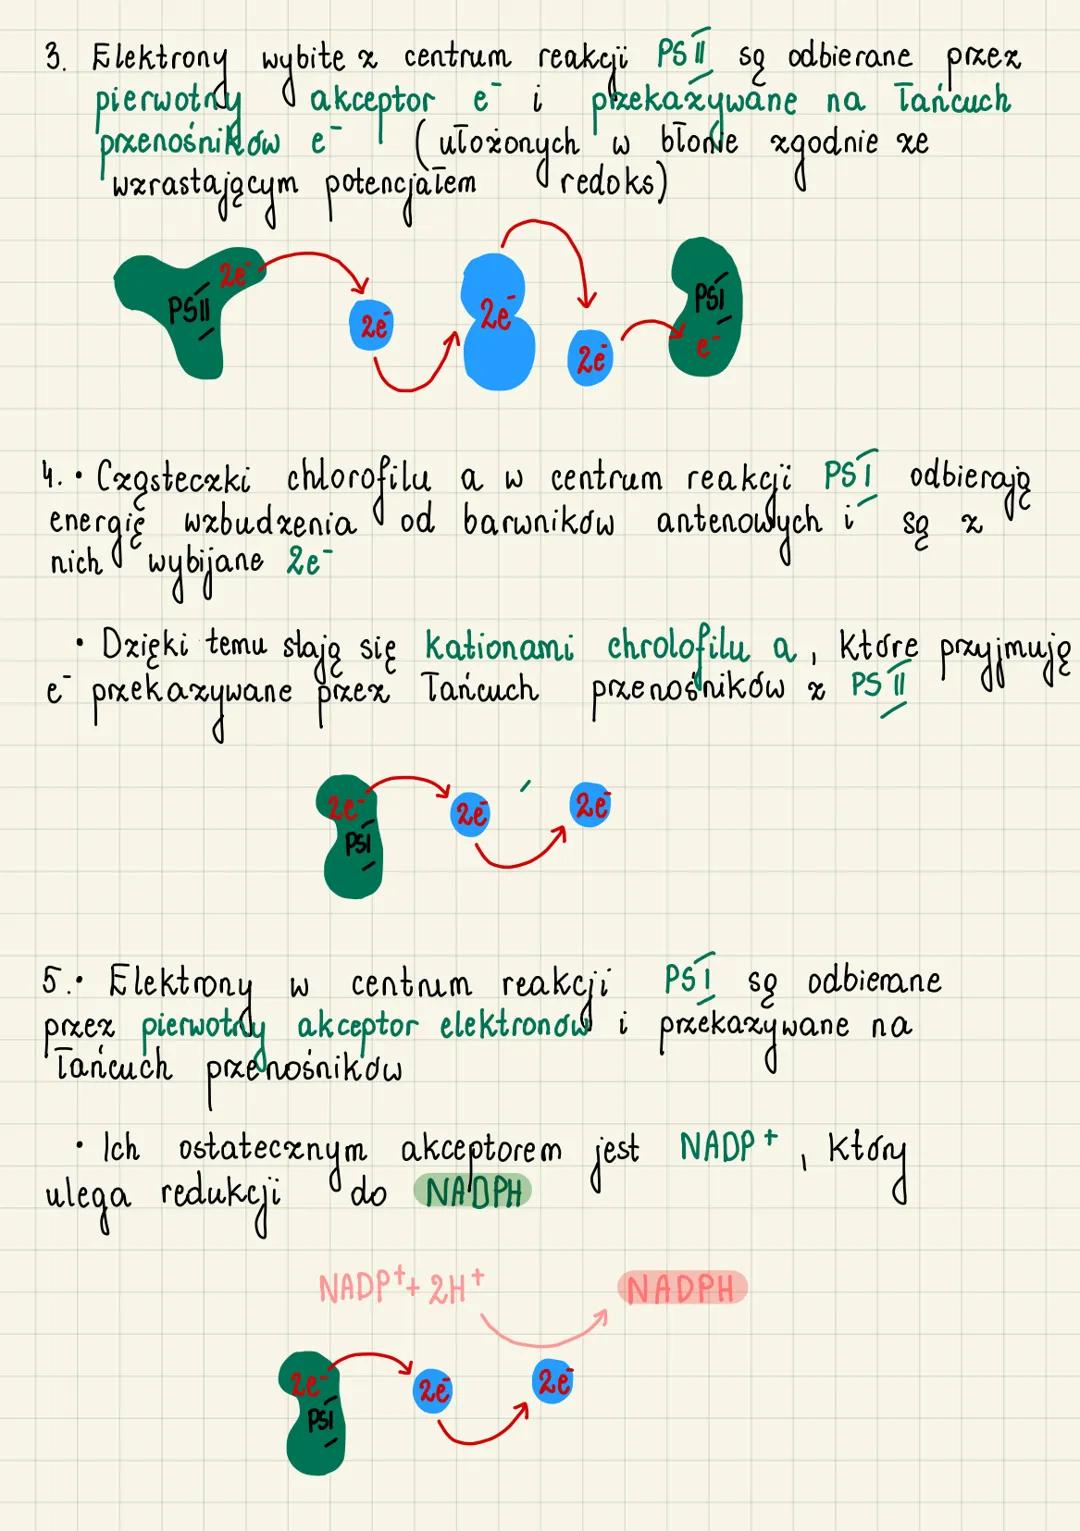 3. Elektrony wybite z centrum reakcji PSII są odbierane przez
pierwotny akceptor e⁻ i przekazywane na łańcuch
przenośników e⁻ (ułożonych w błonie zgodnie ze
wzrastającym potencjałem redoks)
2e⁻
PSII
2e⁻
2e⁻
2e⁻
PSI
e⁻
4. • Cząsteczki chlorofilu a w centrum reakcji PSI odbierają
energię wzbudzenia od barwników antenowych i są z
nich wybijane 2e⁻
• Dzięki temu stają się kationami chrolofilu a, które przyjmują
e⁻ przekazywane przez łańcuch przenośników z PSII
2e⁻
PSI
2e⁻
2e⁻
5. • Elektrony w centrum reakcji PSI są odbierane
przez pierwotny akceptor elektronów i przekazywane na
łańcuch przenośników
• Ich ostatecznym akceptorem jest NADP⁺, który
ulega redukcji do NADPH
NADP⁺ + 2H⁺
NADPH
2e⁻
PSI
2e⁻
2e⁻